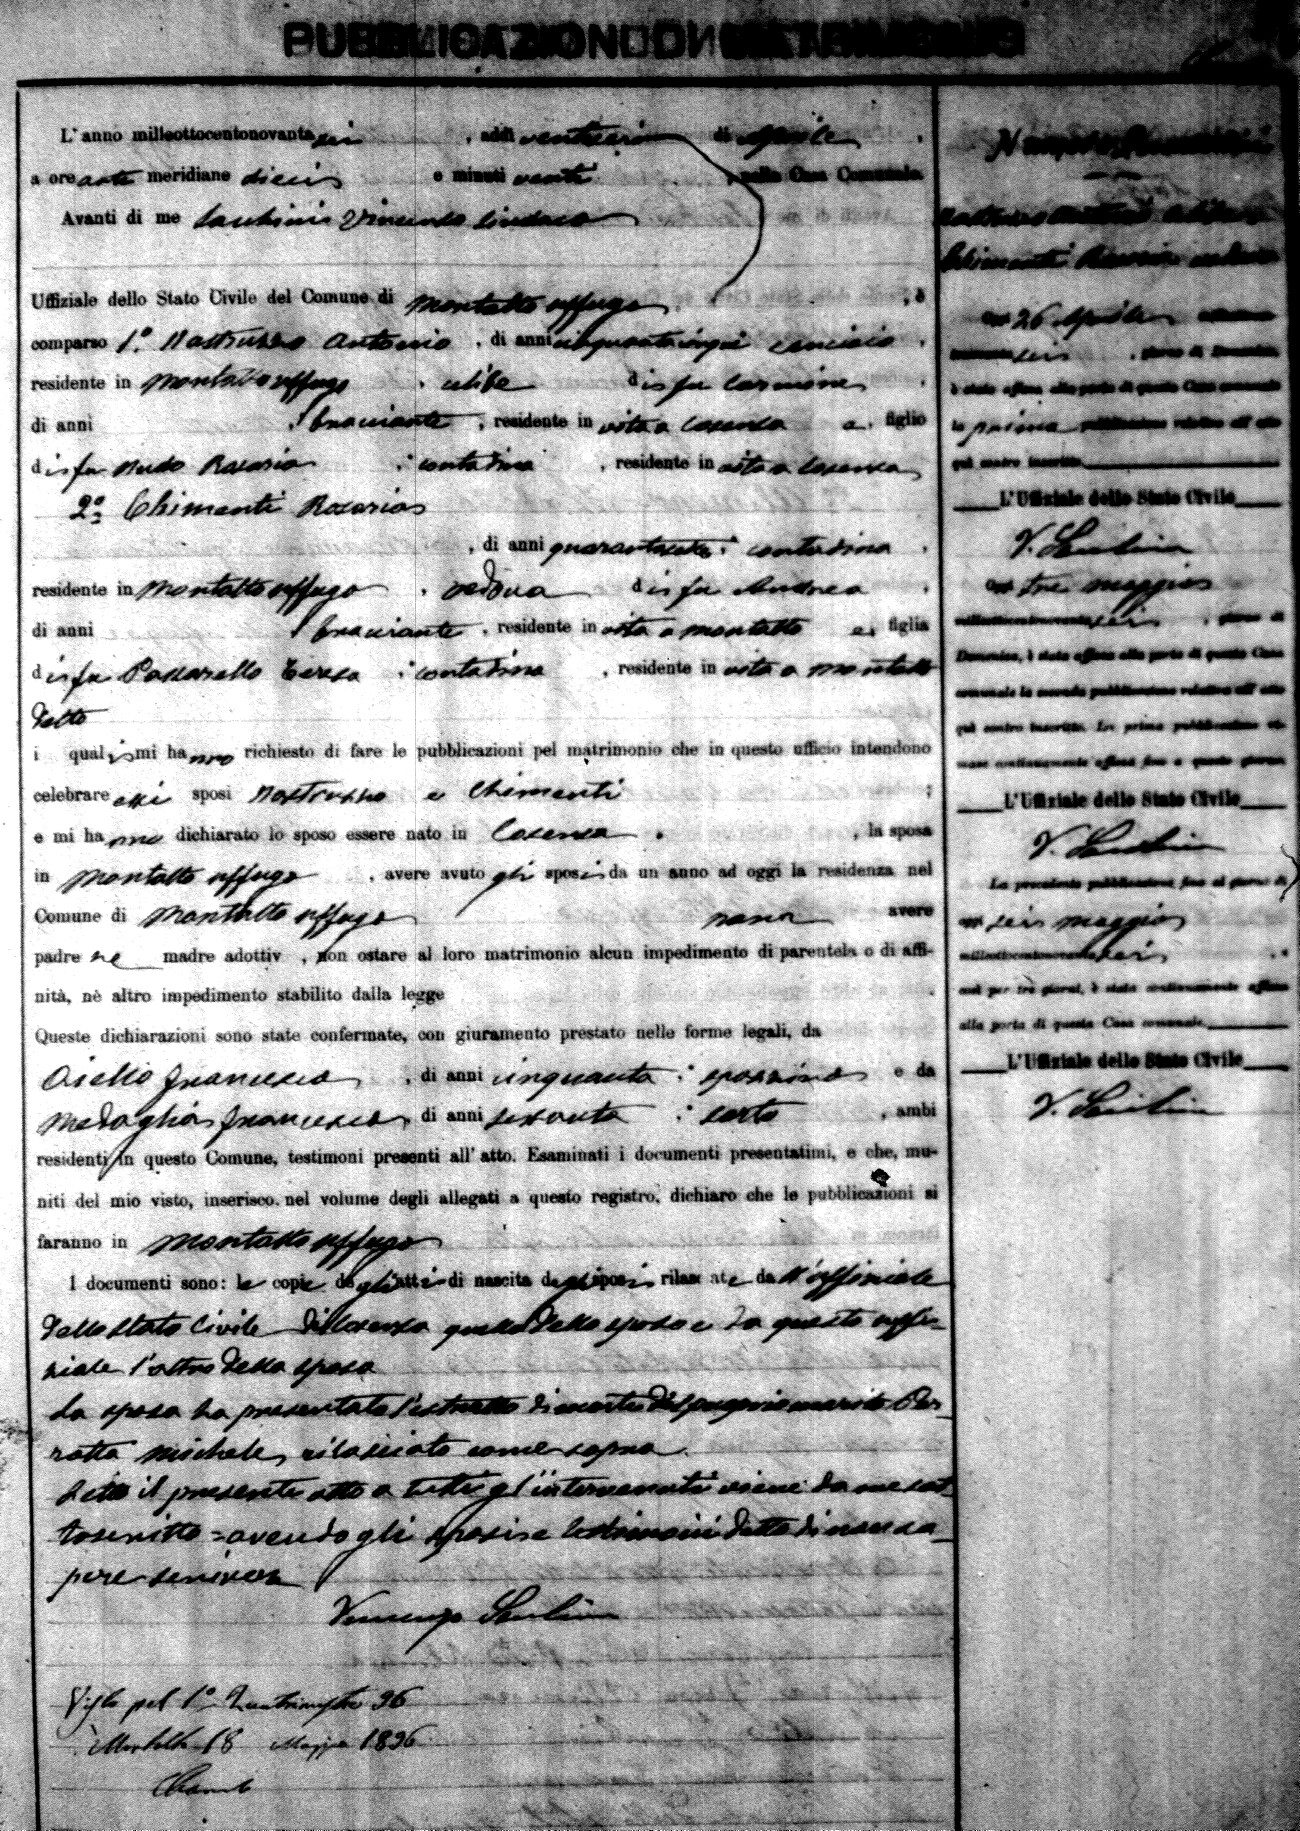 PUBBLICAZIONI DI MATRIMONIO
L'anno milleottocentonovantasei , addì ventisei di Aprile ,
a ore ante meridiane dieci e minuti venti , nella Casa Comunale.
Avanti di me Vincenzo Sindaco
Uffiziale dello Stato Civile del Comune di Montalto Uffugo , è
comparso 1.° Nastruzzo Antonio , di anni cinquantacinque ,
residente in Montalto Uffugo , celibe di fu Carmine ,
di anni , bracciante , residente in vita a Cosenza e , figlio
di fu Nudo Rosaria , contadina , residente in vita a Cosenza
2.° Chimenti Rosaria
, di anni quarantasette , contadina ,
residente in Montalto Uffugo , vedova di fu Andrea ,
di anni , bracciante , residente in vita a Montalto e , figlia
di fu Passarello Teresa , contadina , residente in vita a Montalto
detto
i quali mi hanno richiesto di fare le pubblicazioni pel matrimonio che in questo ufficio intendono
celebrare essi sposi Nastruzzo e Chimenti ;
e mi hanno dichiarato lo sposo essere nato in Cosenza , la sposa
in Montalto Uffugo , avere avuto gli sposi da un anno ad oggi la residenza nel
Comune di Montalto Uffugo non avere
padre nè madre adottiv , non ostare al loro matrimonio alcun impedimento di parentela o di affi-
nità, nè altro impedimento stabilito dalla legge
Queste dichiarazioni sono state confermate, con giuramento prestato nelle forme legali, da
Aiello Francesco , di anni cinquanta , spazzino e da
Medaglia Francesco , di anni sessanta , sarto , ambi
residenti in questo Comune, testimoni presenti all'atto. Esaminati i documenti presentatimi, e che, mu-
niti del mio visto, inserisco nel volume degli allegati a questo registro, dichiaro che le pubblicazioni si
faranno in Montalto Uffugo
I documenti sono: le copie degli atti di nascita degli sposi rilasciate dall'uffiziale
dello Stato Civile di Cosenza quello dello sposo e da questo uffi-
ziale l'altro della sposa
La sposa ha presentato l'estratto di morte del proprio marito Per-
rotta Michele, rilasciato come sopra.
Letto il presente atto a tutti gl'intervenuti viene da me sot-
toscritto = avendo gli sposi e testimoni detto di non sa-
pere scrivere
Vincenzo
Visto pel 1° Quadrimestre 96
Montalto 18 Maggio 1896
Numero
Nastruzzo Antonio celibe e
Chimenti Rosaria vedova
Oggi 26 Aprile milleotto-
centonovantasei , giorno di Domenica,
è stata affissa alla porta di questa Casa comunale
la prima pubblicazione relativa all'atto
qui contro inscritto.
L'Uffiziale dello Stato Civile
V.
Oggi tre maggio
milleottocentonovantasei , giorno di
Domenica, è stata affissa alla porta di questa Casa
comunale la seconda pubblicazione relativa all'atto
qui contro inscritto. La prima pubblicazione ri-
mase continuamente affissa fino a questo giorno.
L'Uffiziale dello Stato Civile
V.
La precedente pubblicazione fino al giorno di
oggi sei maggio
milleottocentonovantasei ,
cioè per tre giorni, è stata continuamente affissa
alla porta di questa Casa comunale.
L'Uffiziale dello Stato Civile
V.